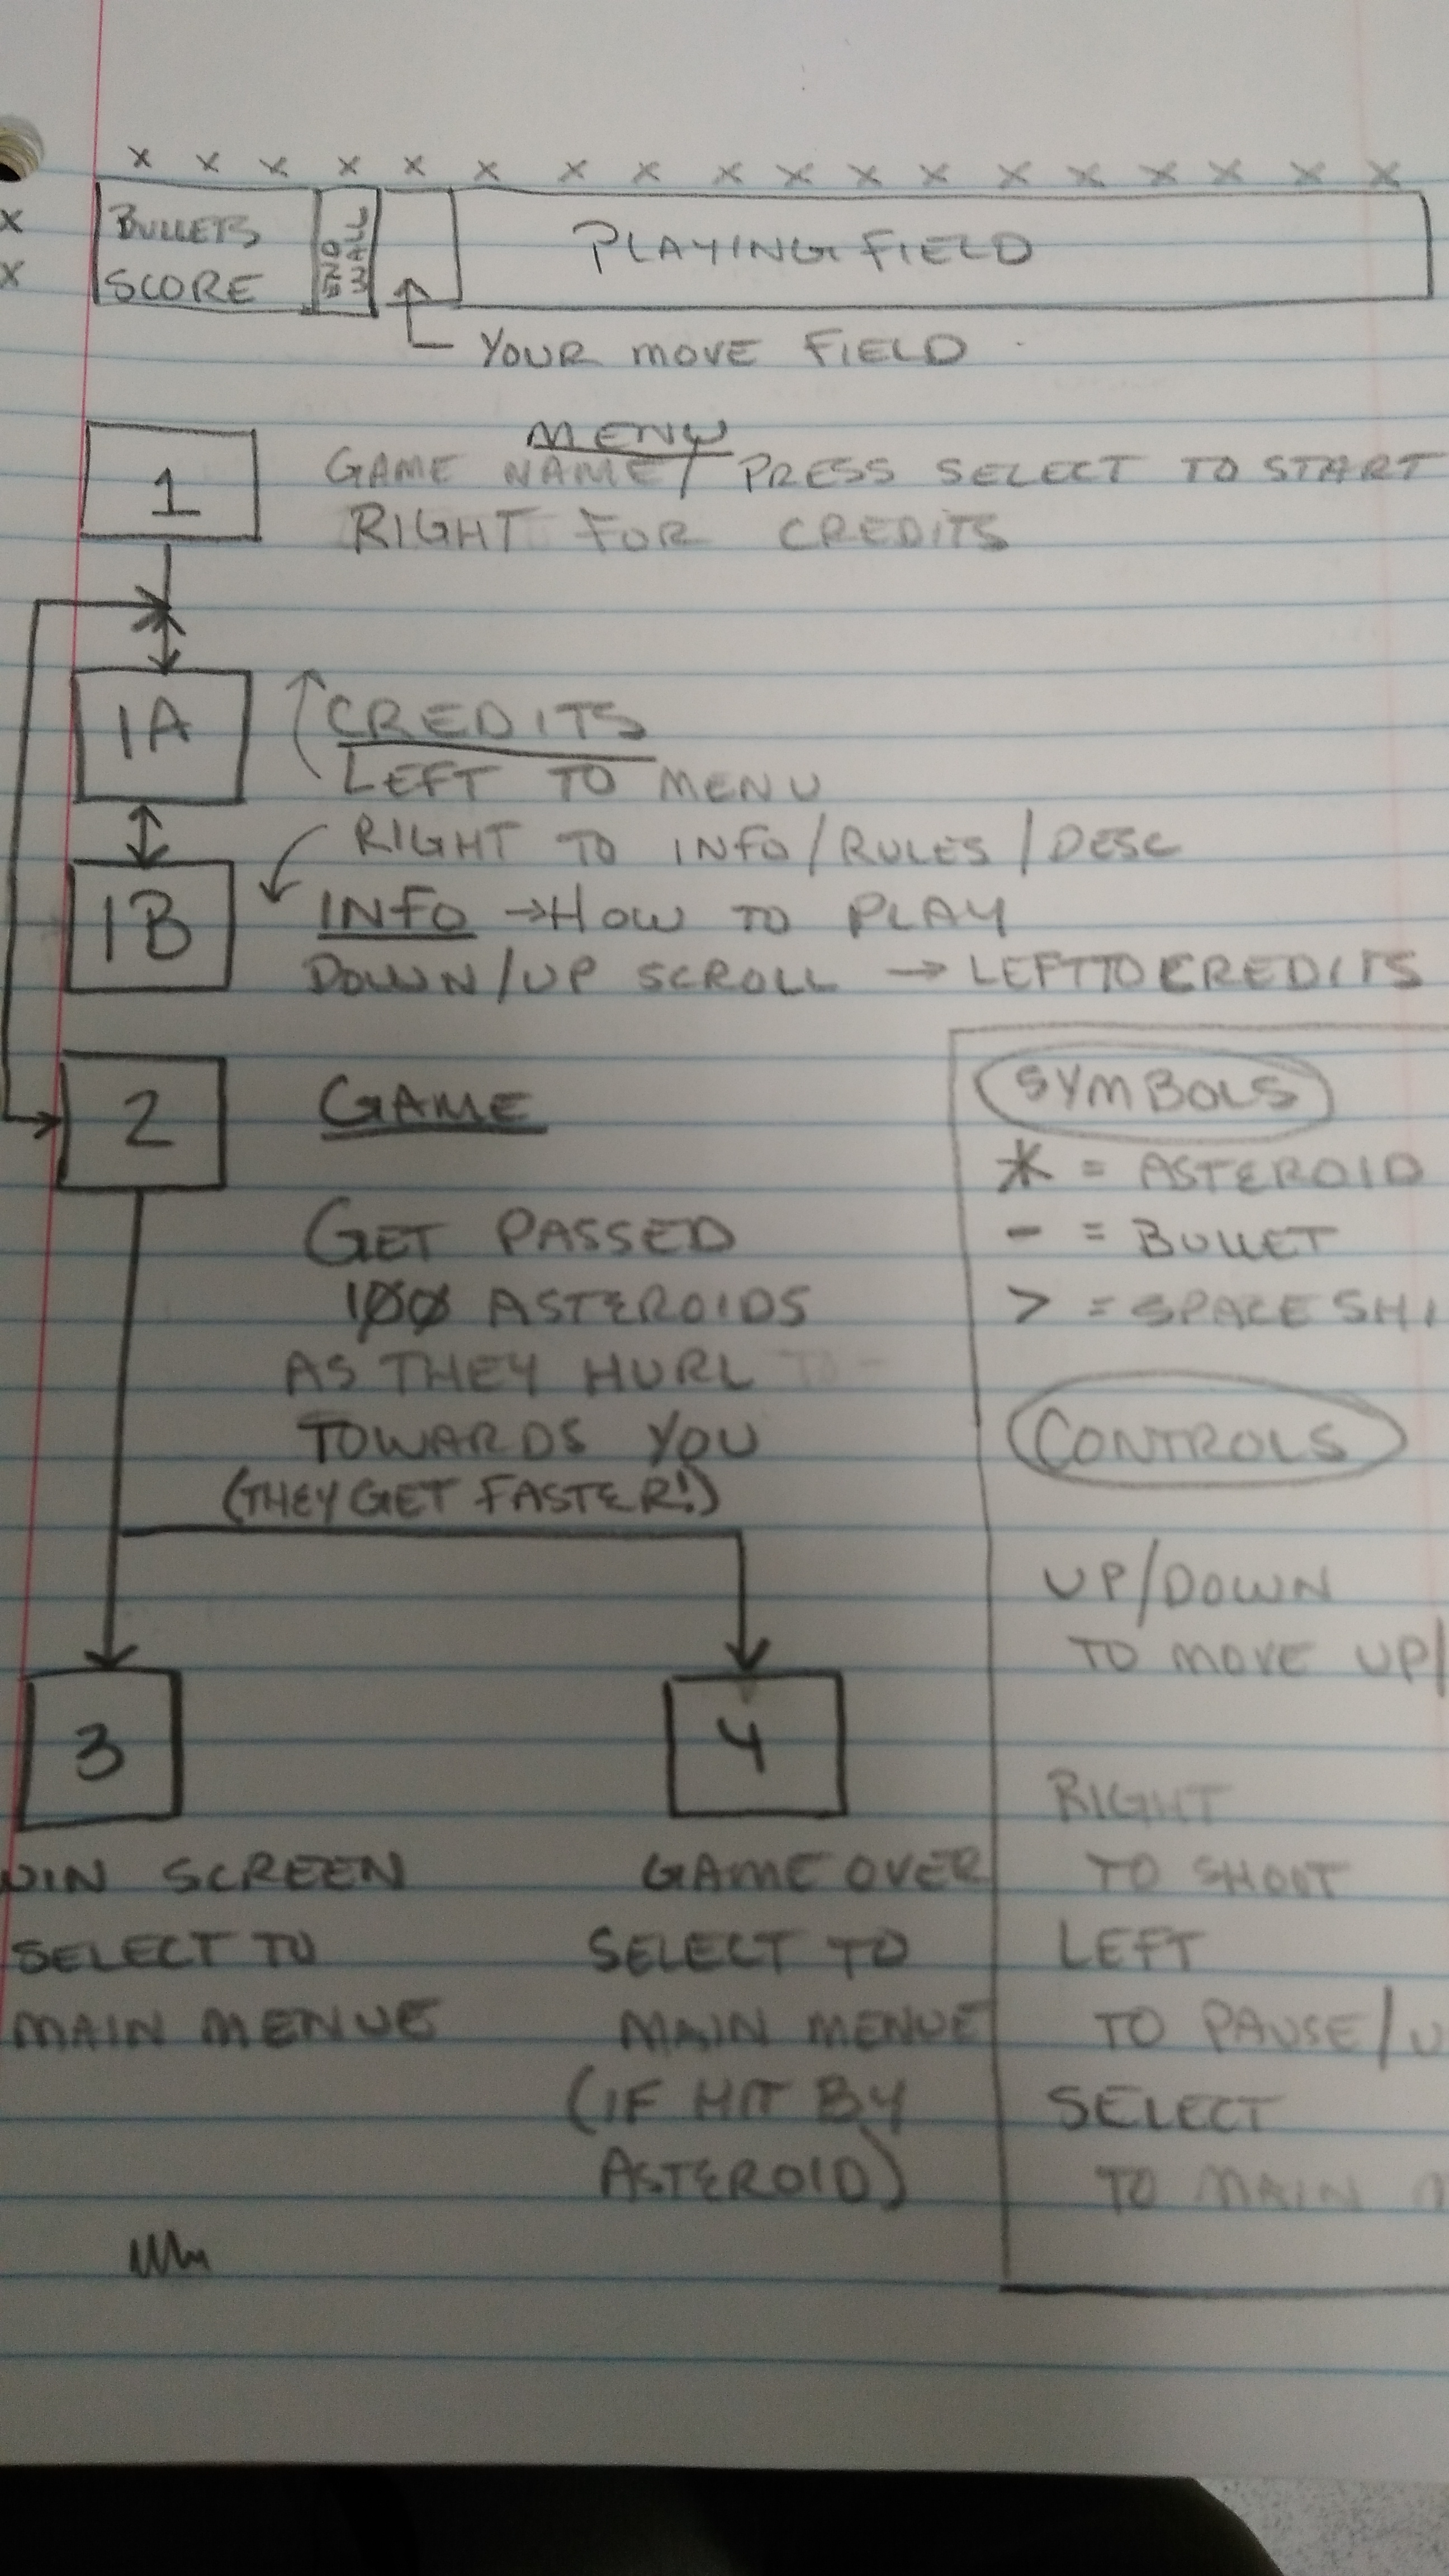 x x x x x x x x x x x x x x x x x x
x
x
BULLETS
SCORE
END
WALL
PLAYING FIELD
YOUR MOVE FIELD
MENU
1
GAME NAME / PRESS SELECT TO START
RIGHT FOR CREDITS
1A
CREDITS
LEFT TO MENU
RIGHT TO INFO/RULES/DESC
1B
INFO →HOW TO PLAY
DOWN/UP SCROLL → LEFT TO CREDITS
2
GAME
GET PASSED
100 ASTEROIDS
AS THEY HURL
TOWARDS YOU
(THEY GET FASTER!)
3
WIN SCREEN
SELECT TO
MAIN MENUE
4
GAME OVER
SELECT TO
MAIN MENUE
(IF HIT BY
ASTEROID)
SYMBOLS
* = ASTEROID
- = BULLET
> = SPACE SHI
CONTROLS
UP/DOWN
TO MOVE UP/
RIGHT
TO SHOOT
LEFT
TO PAUSE/U
SELECT
TO MAIN